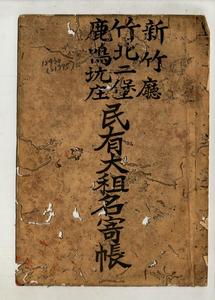 新竹廳
竹北二堡
鹿鳴坑庄
民有大租名寄帳